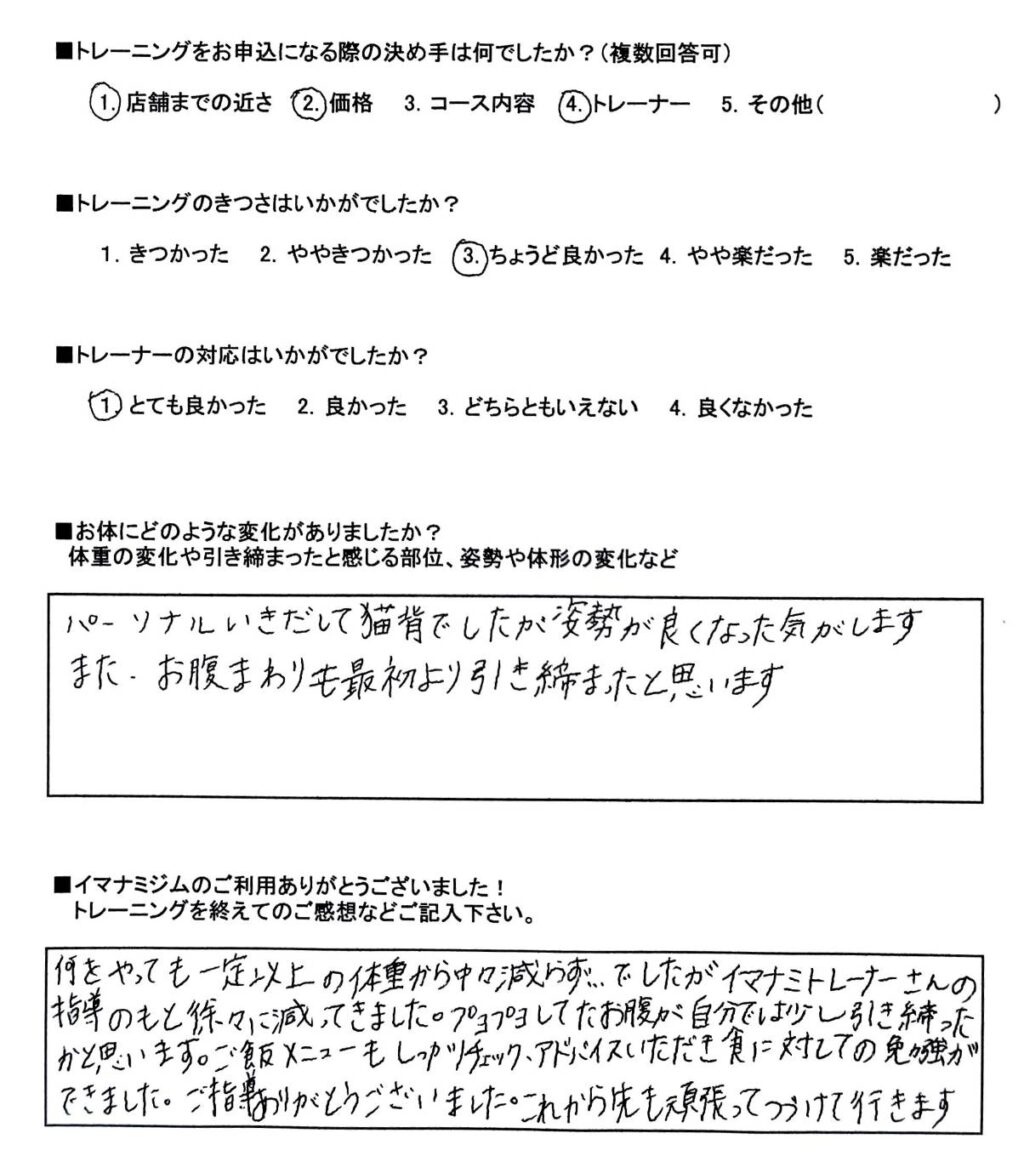 ■トレーニングをお申込になる際の決め手は何でしたか？（複数回答可）
1. 店舗までの近さ 2. 価格 3. コース内容 4. トレーナー 5. その他（ ）
■トレーニングのきつさはいかがでしたか？
1. きつかった 2. ややきつかった 3. ちょうど良かった 4. やや楽だった 5. 楽だった
■トレーナーの対応はいかがでしたか？
1 とても良かった 2. 良かった 3. どちらともいえない 4. 良くなかった
■お体にどのような変化がありましたか？
体重の変化や引き締まったと感じる部位、姿勢や体形の変化など
パーソナルいきだして猫背でしたが姿勢が良くなった気がします
また、お腹まわりも最初より引き締まったと思います
■イマナミジムのご利用ありがとうございました！
トレーニングを終えてのご感想などご記入下さい。
何をやっても一定以上の体重から中々減らず…でしたがイマナミトレーナーさんの
指導のもと徐々に減ってきました。プヨプヨしてたお腹が自分では少し引き締った
かと思います。ご飯メニューもしっかりチェック、アドバイスいただき食に対しての勉強が
できました。ご指導ありがとうございました。これから先も頑張ってつづけて行きます